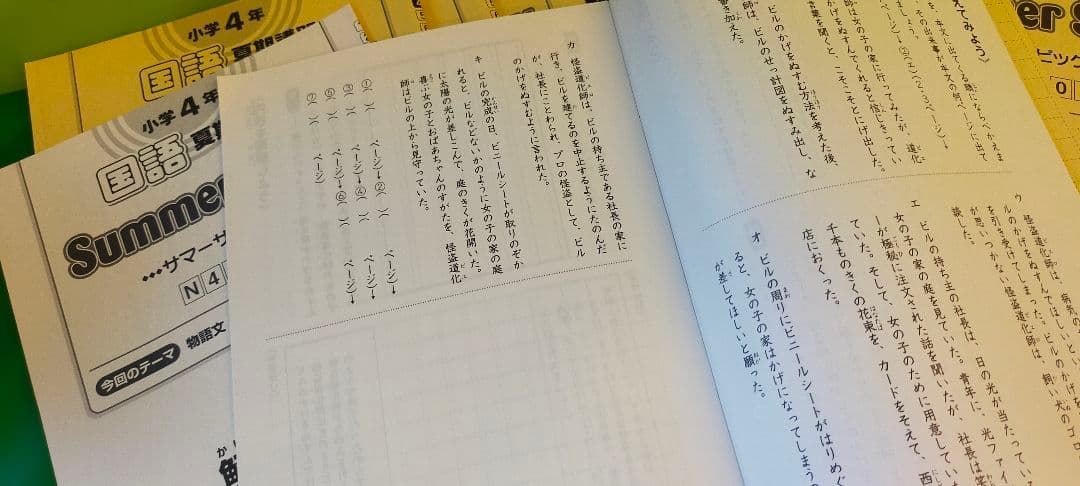 小学4年
国語
夏期講
小学4年
国語
夏
Summe
…サマーサ
N4
今回のテーマ
物語文
えてみよう》
師は女の子の家に行ってみたが、道化
かげをぬすんでくれると信じきってい
言葉を聞くと、こそこそとにげ出した。
ビルのかげをぬすむ方法を考えた後、
師は、ビルのせっ計図をぬすみ出し、な
書き加えた。
ウ 怪盗道化師は、病気の
を引き受けてしまった。ビルのかげを
が思いつかない怪盗道化師は、飼い犬のゴロ
談した。
エ ビルの持ち主の社長は、日の光が当たってい
女の子の家の庭を見ていた。青年に、光ファイ
ーが極秘に注文された話を聞いたが、社長は笑
ていた。そして、女の子のために用意してい
千本ものきくの花束を、カードをそえて、西
店におくった。
オ ビルの周りにビニールシートがはりめぐ
ると、女の子の家はかげになってしまうの
が差してほしいと願った。
カ 怪盗道化師は、ビルの持ち主である社長の家に
行き、ビルを建てるのを中止するようにたのんだ
が、社長にことわられ、プロの怪盗として、ビル
のかげをぬすむように言われた。
キ ビルの完成の日、ビニールシートが取りのぞか
れると、ビルなどないかのように女の子の家の庭
に太陽の光が差しこんで、庭のきくが花開いた。
喜ぶ女の子とおばあちゃんのすがたを、怪盗道化
師はビルの上から見守っていた。
① )( ページ)→② )( ページ)→
③ )( ページ)→④ )( ページ)→
⑤ )( ページ)→⑥ )( ページ)→
⑦ )( ページ)
er S
ビック
0